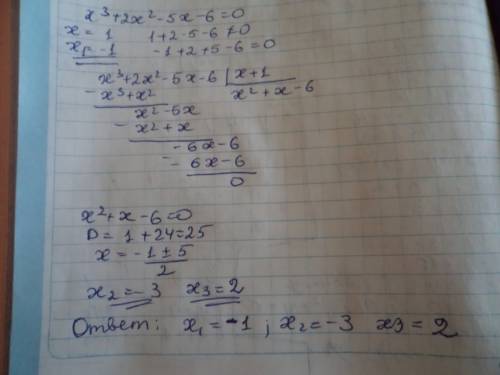 x³+2x²-5x-6=0
x=1 1+2-5-6≠0
x₁=-1 -1+2+5-6=0
x³+2x²-5x-6 | x+1
- x³+x² x²+x-6
x²-5x
- x²+x
-6x-6
- -6x-6
0
x²+x-6=0
D=1+24=25
x=-1±5
2
x₂=-3 x₃=2
Ответ: x₁=-1; x₂=-3 x3=2